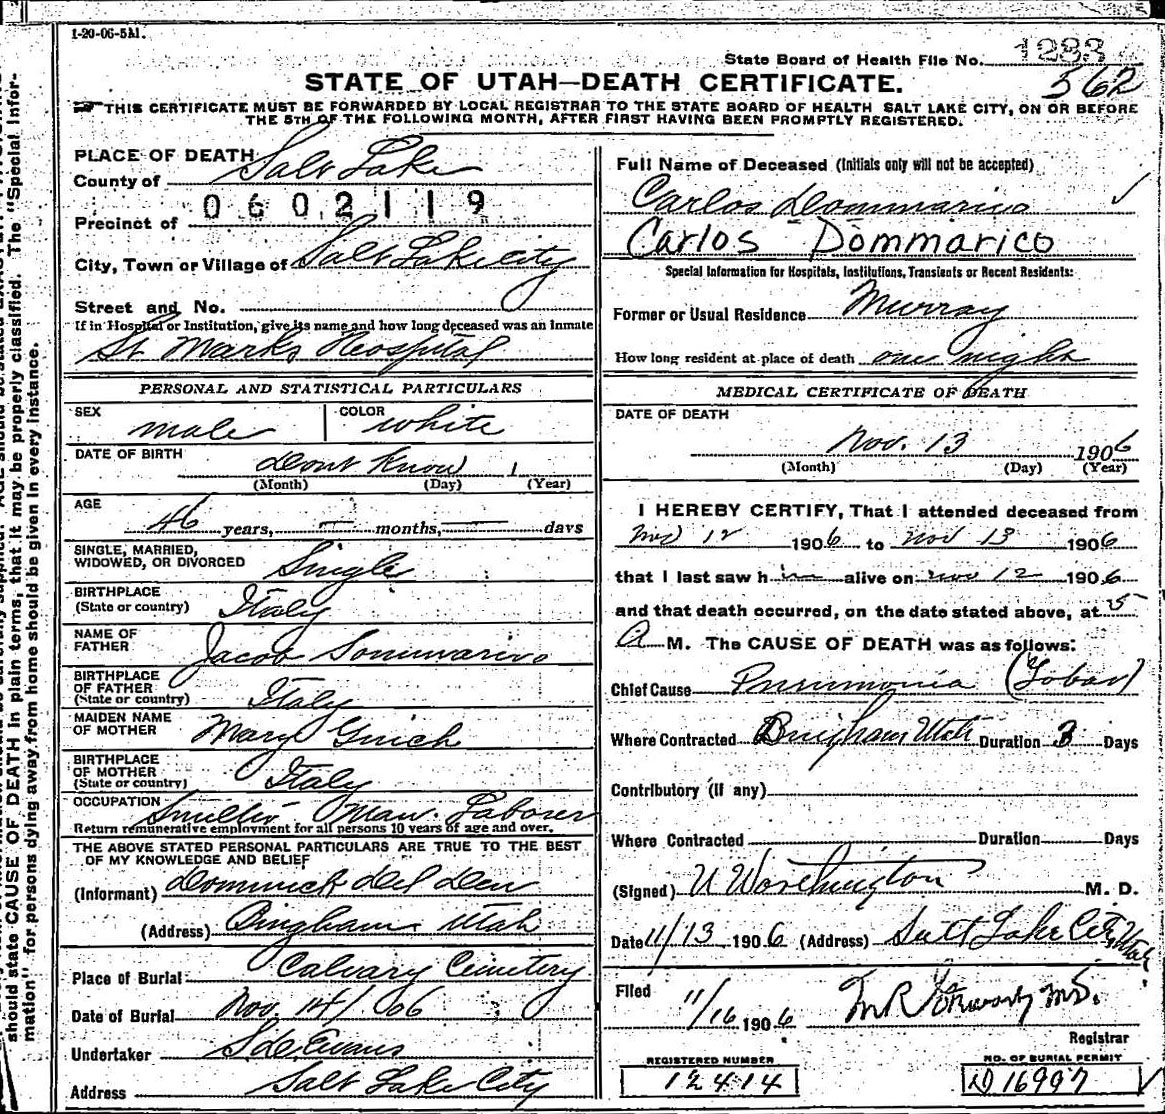 1-20-06-5M.
State Board of Health File No. 1283
562
STATE OF UTAH—DEATH CERTIFICATE.
THIS CERTIFICATE MUST BE FORWARDED BY LOCAL REGISTRAR TO THE STATE BOARD OF HEALTH SALT LAKE CITY, ON OR BEFORE
THE 5TH OF THE FOLLOWING MONTH, AFTER FIRST HAVING BEEN PROMPTLY REGISTERED.
PLACE OF DEATH
County of Salt Lake
0602119
Precinct of
City, Town or Village of Salt Lake City
Street and No.
If in Hospital or Institution, give its name and how long deceased was an inmate
St Marks Hospital
PERSONAL AND STATISTICAL PARTICULARS
SEX male COLOR white
DATE OF BIRTH dont Know 1
(Month) (Day) (Year)
AGE 46 years, — months, — days
SINGLE, MARRIED,
WIDOWED, OR DIVORCED Single
BIRTHPLACE
(State or country) Italy
NAME OF
FATHER Jacob
BIRTHPLACE
OF FATHER
(State or country) Italy
MAIDEN NAME
OF MOTHER Mary
BIRTHPLACE
OF MOTHER
(State or country) Italy
OCCUPATION Man. Laborer
Return remunerative employment for all persons 10 years of age and over.
THE ABOVE STATED PERSONAL PARTICULARS ARE TRUE TO THE BEST
OF MY KNOWLEDGE AND BELIEF
(Informant) Dominick Del
(Address) Bingham Utah
Place of Burial Calvary Cemetery
Date of Burial Nov. 14/06
Undertaker Evans
Address Salt Lake City
Full Name of Deceased (Initials only will not be accepted)
Carlos Dommarico
Carlos Dommarico
Special Information for Hospitals, Institutions, Transients or Recent Residents:
Former or Usual Residence Murray
How long resident at place of death one night
MEDICAL CERTIFICATE OF DEATH
DATE OF DEATH
Nov. 13 1906
(Month) (Day) (Year)
I HEREBY CERTIFY, That I attended deceased from
Nov 12 1906 to Nov 13 1906
that I last saw him alive on Nov 12 1906
and that death occurred, on the date stated above, at 5
A M. The CAUSE OF DEATH was as follows:
Chief Cause Pneumonia (Lobar)
Where Contracted Bingham Utah Duration 3 Days
Contributory (if any)
Where Contracted Duration Days
(Signed) U Worthington M. D.
Date 11/13 1906 (Address) Salt Lake City, Utah
Filed 11/16 1906 M.D.
Registrar
REGISTERED NUMBER
12414
NO. OF BURIAL PERMIT
D 16997
should state CAUSE OF DEATH in plain terms, that it may be properly classified. The "Special Infor-
mation" for persons dying away from home should be given in every instance.